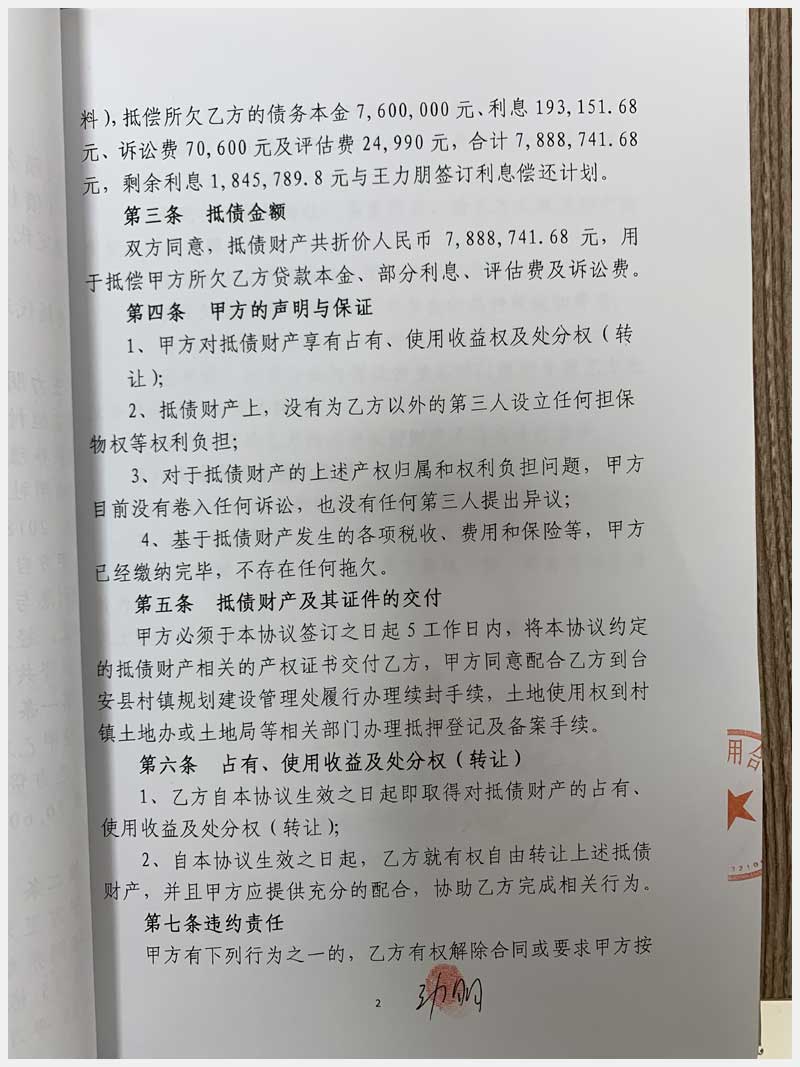 料),抵偿所欠乙方的债务本金 7,600,000 元、利息 193,151.68
元、诉讼费 70,600 元及评估费 24,990 元，合计 7,888,741.68
元，剩余利息 1,845,789.8 元与王力朋签订利息偿还计划。
第三条 抵债金额
双方同意，抵债财产共折价人民币 7,888,741.68 元，用
于抵偿甲方所欠乙方贷款本金、部分利息、评估费及诉讼费。
第四条 甲方的声明与保证
1、甲方对抵债财产享有占有、使用收益权及处分权（转
让）；
2、抵债财产上，没有为乙方以外的第三人设立任何担保
物权等权利负担；
3、对于抵债财产的上述产权归属和权利负担问题，甲方
目前没有卷入任何诉讼，也没有任何第三人提出异议；
4、基于抵债财产发生的各项税收、费用和保险等，甲方
已经缴纳完毕，不存在任何拖欠。
第五条 抵债财产及其证件的交付
甲方必须于本协议签订之日起 5 工作日内，将本协议约定
的抵债财产相关的产权证书交付乙方，甲方同意配合乙方到台
安县村镇规划建设管理处履行办理续封手续，土地使用权到村
镇土地办或土地局等相关部门办理抵押登记及备案手续。
第六条 占有、使用收益及处分权（转让）
1、乙方自本协议生效之日起即取得对抵债财产的占有、
使用收益及处分权（转让）；
2、自本协议生效之日起，乙方就有权自由转让上述抵债
财产，并且甲方应提供充分的配合，协助乙方完成相关行为。
第七条违约责任
甲方有下列行为之一的，乙方有权解除合同或要求甲方按
2
用合